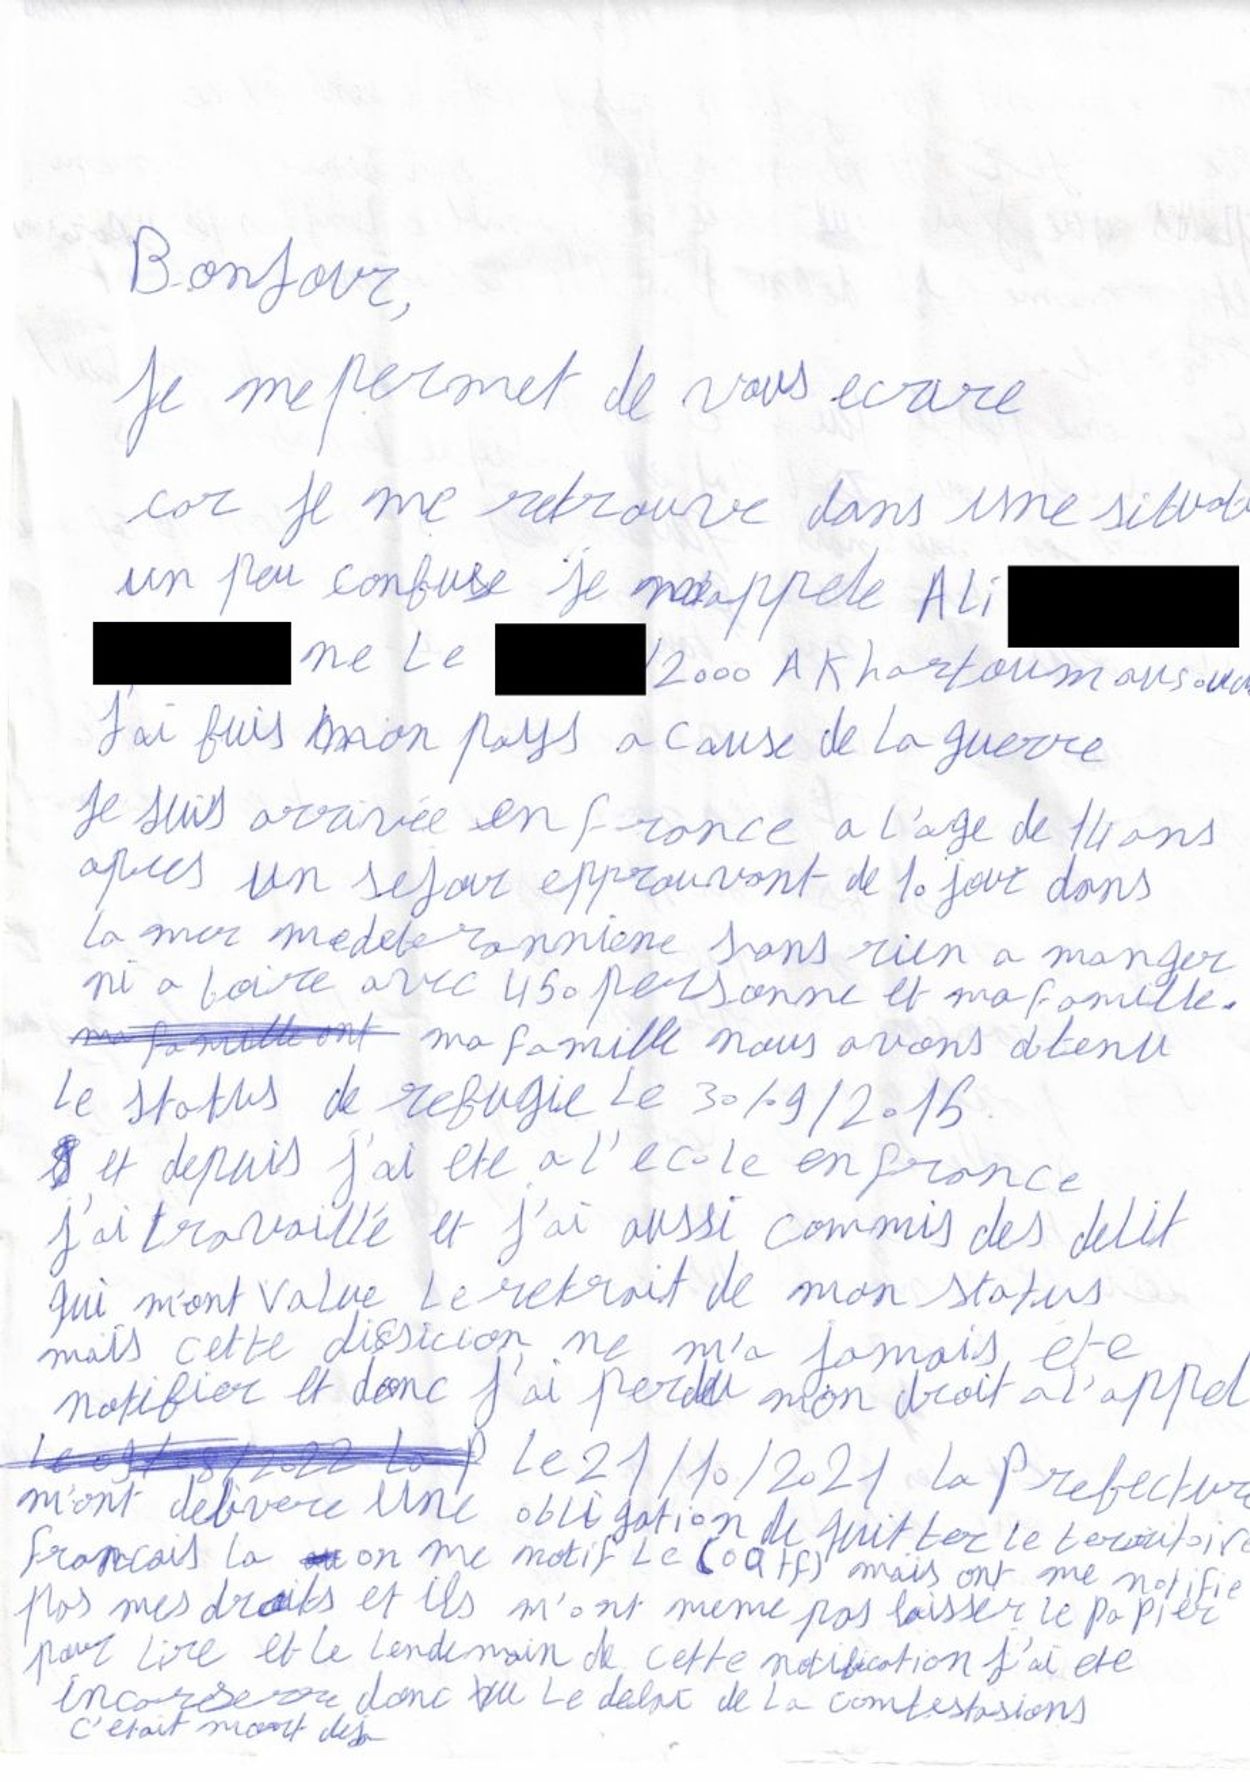 Bonjour,
je me permet de vous ecrire
car je me retrouve dans une situat
un peu confuse je m'appele Ali
ne Le /2000 A Khartoum au soud
J'ai fuis mon pays a cause de La guerre
Je suis arrivée en france a l'age de 14 ans
apres un sejour epprouvant de 10 jour dans
la mer medeteranniene sans rien a manger
ni a boire avec 450 personne et ma famille.
ma famille ont ma famille nous avons obtenu
Le status de refugie Le 30/09/2015.
et depuis j'ai ete a l'ecole en france
j'ai travaillé et j'ai aussi commis des delit
qui m'ont value Le retrait de mon status
mais cette dissicion ne m'a jamais ete
notifier et donc j'ai perdu mon droit a l'appel
Le 21/10/2021 La prefecture
m'ont delivere une obligation de quitter le teroitoire
francais la on me notif Le (oqtf) mais ont me notifie
pas mes droits et ils m'ont meme pas laisser le papier
pour lire et le lendemain de cette notification j'ai ete
incarserer donc vu Le delai de La contestasions
c'etait mort deja